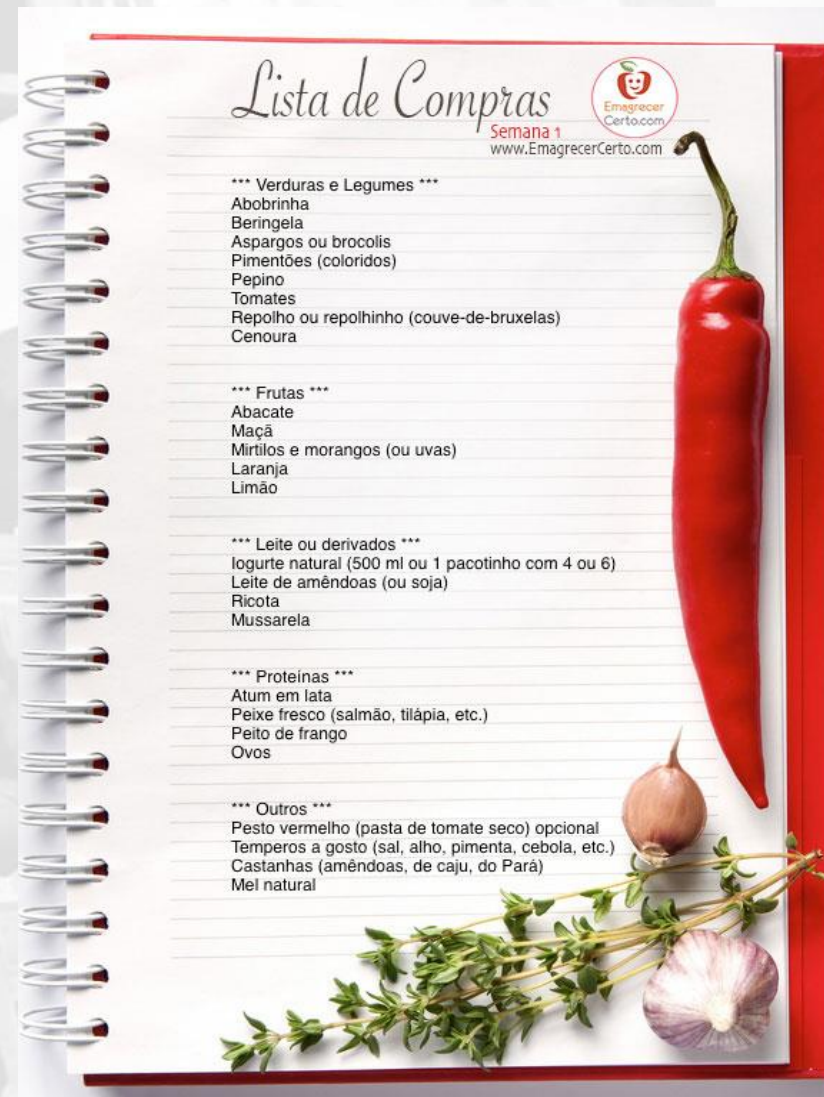 Lista de Compras
Emagrecer
Certo.com
Semana 1
www.EmagrecerCerto.com
*** Verduras e Legumes ***
Abobrinha
Beringela
Aspargos ou brocolis
Pimentões (coloridos)
Pepino
Tomates
Repolho ou repolhinho (couve-de-bruxelas)
Cenoura
*** Frutas ***
Abacate
Maçã
Mirtilos e morangos (ou uvas)
Laranja
Limão
*** Leite ou derivados ***
Iogurte natural (500 ml ou 1 pacotinho com 4 ou 6)
Leite de amêndoas (ou soja)
Ricota
Mussarela
*** Proteínas ***
Atum em lata
Peixe fresco (salmão, tilápia, etc.)
Peito de frango
Ovos
*** Outros ***
Pesto vermelho (pasta de tomate seco) opcional
Temperos a gosto (sal, alho, pimenta, cebola, etc.)
Castanhas (amêndoas, de caju, do Pará)
Mel natural